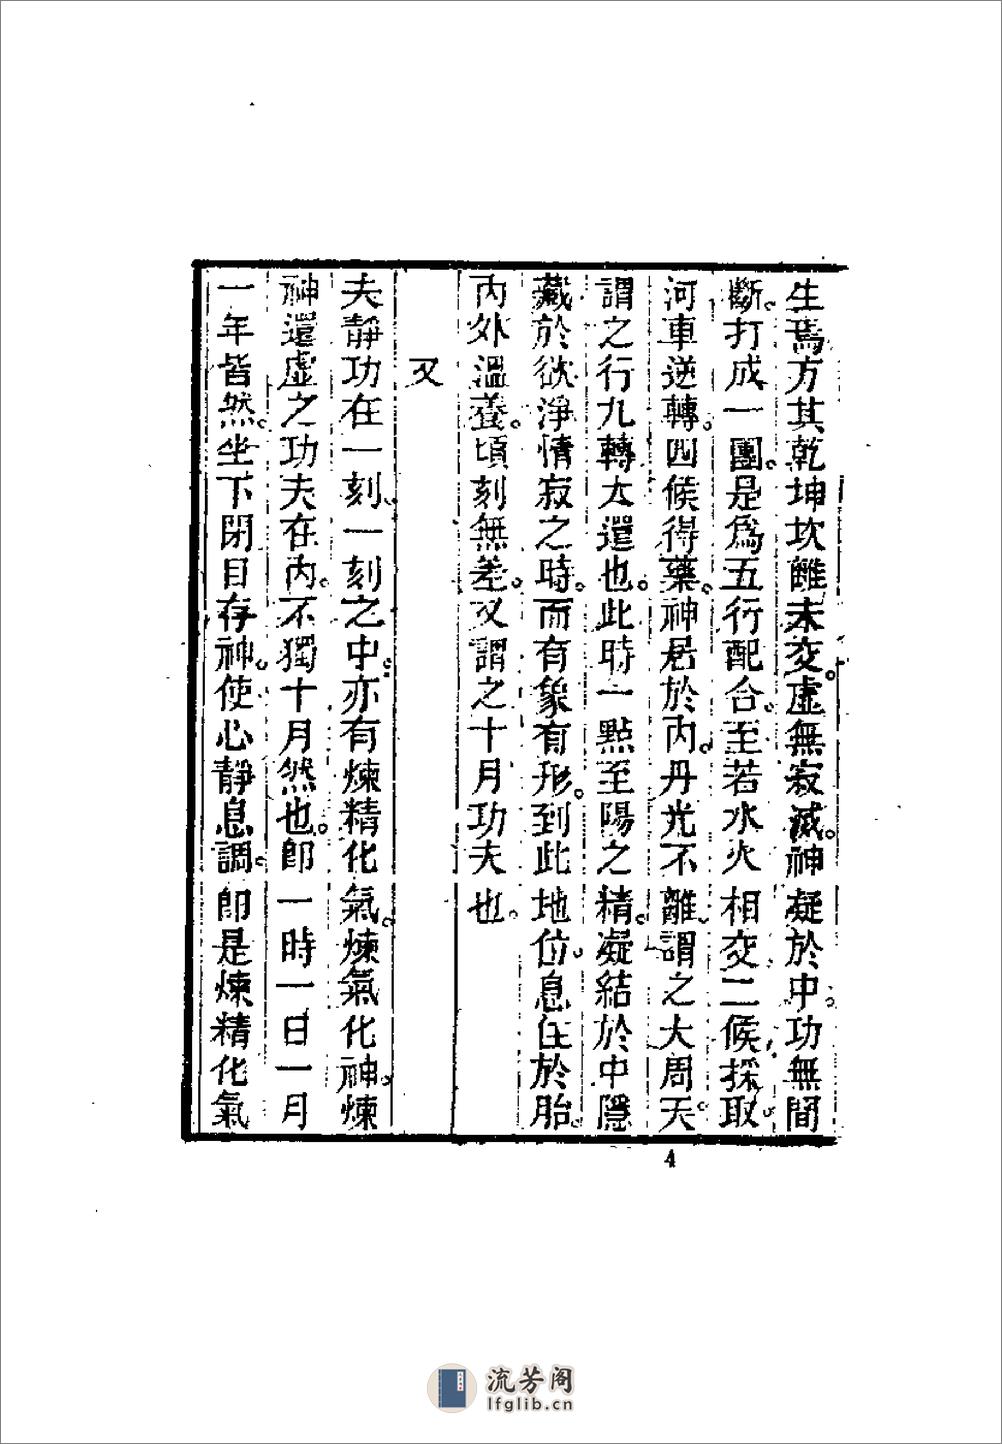 生焉方其乾坤坎離未交。虛無寂滅。神凝於中。功無間
斷。打成一團。是爲五行配合。至若水火相交二候採取。
河車逆轉。四候得藥。神居於內。丹光不離謂之大周天。
謂之行九轉大還也。此時一點至陽之精。凝結於中隱
藏於欲淨情寂之時。而有象有形。到此地位。息住於胎。
內外溫養。頃刻無差。又謂之十月功夫也。
又
夫靜功在一刻。一刻之中。亦有煉精化氣。煉氣化神。煉
神還虛之功夫在內。不獨十月然也。卽一時一日一月
一年皆然。坐下閉目存神。使心靜息調。卽是煉精化氣
4
流芳阁
lfglib.cn